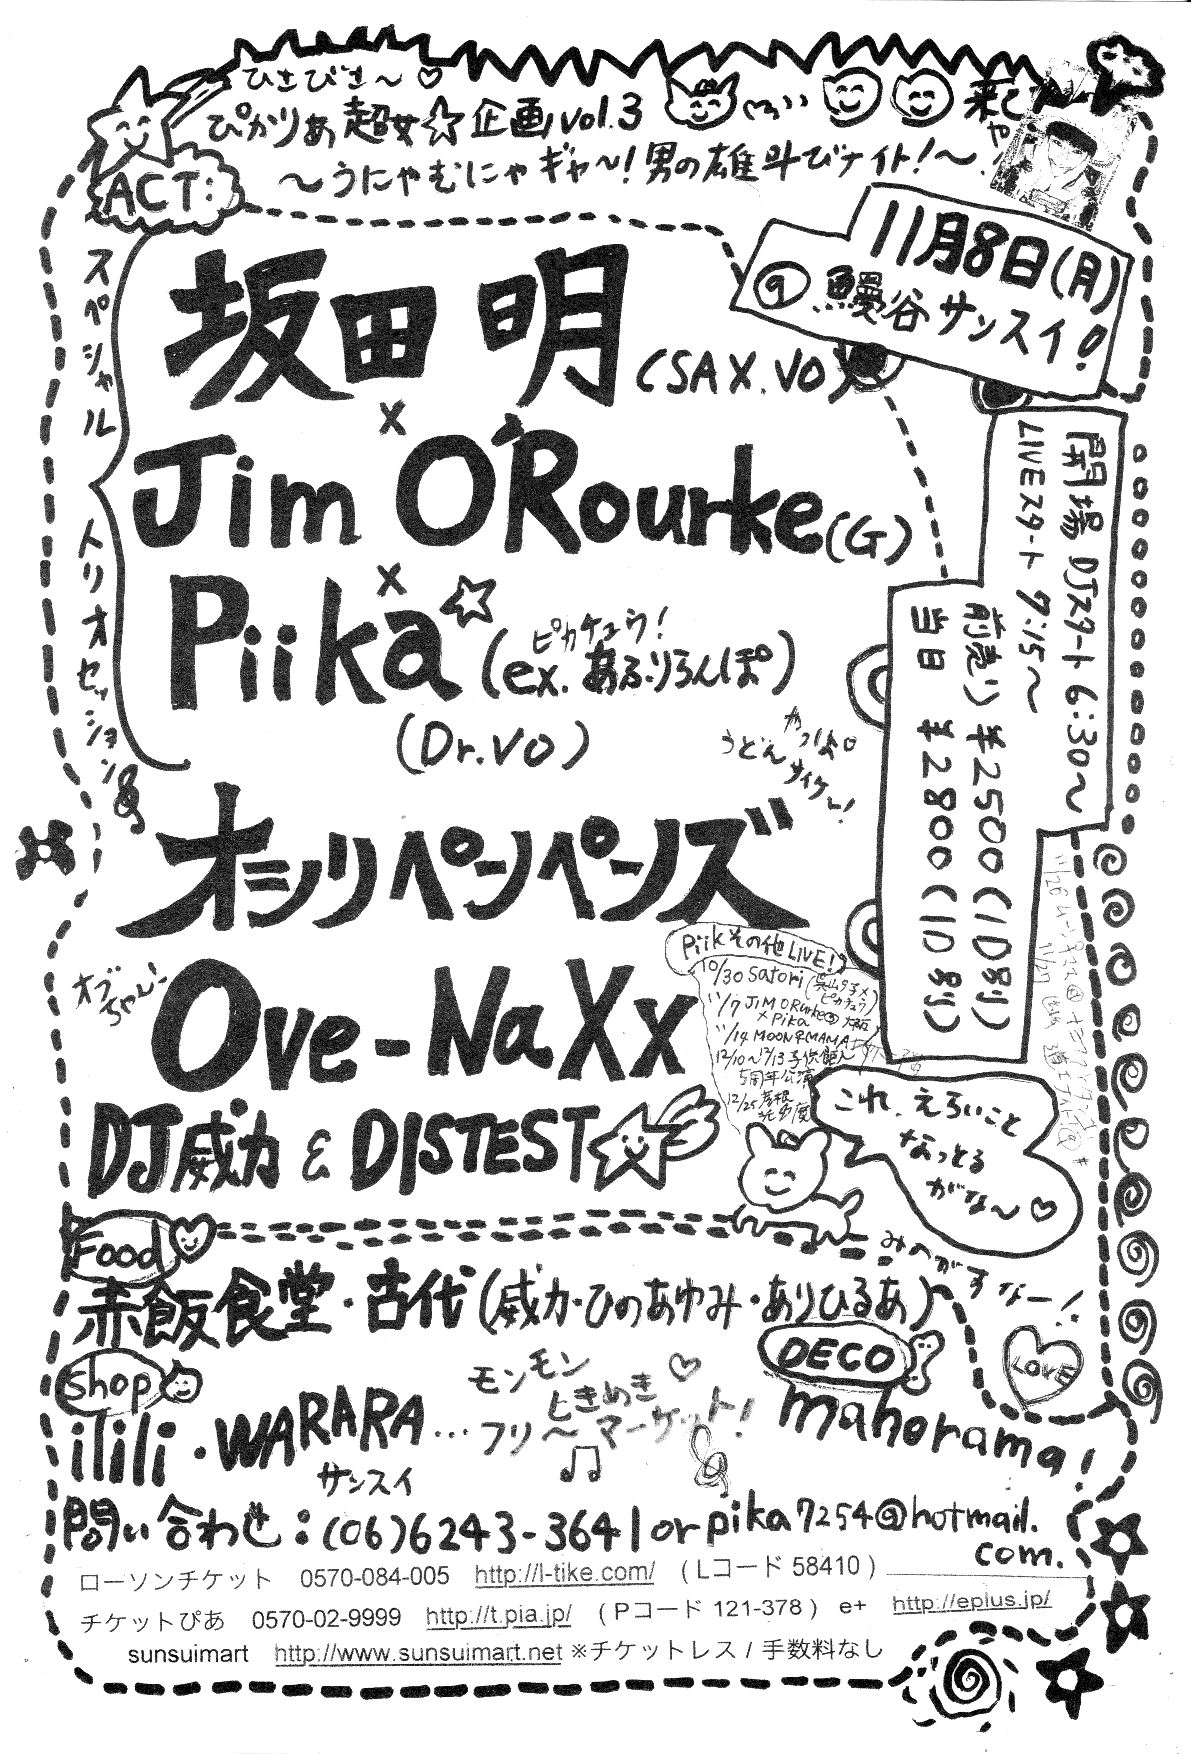 ひさびさ～♡
ぴかりあ超女☆企画vol.3
～うにゃむにゃギャ～!男の雄叫びナイト!～
ACT:
11月8日(月)
@鰻谷サンスイ!
スペシャルトリオセッション
坂田明(SAX.VO)
×
Jim O'Rourke(G)
×
Piika☆(ex.あふりらんぽ)
ピカチュウ!
(Dr.VO)
開場 DJスタート 6:30～
LIVEスタート 7:15～
前売り ¥2500(1D別)
当日 ¥2800(1D別)
やっほ♡
うどん
サイケ～!
オシリペンペンズ
オブちゃん!
Ove-NaXx
DJ威力 & DISTEST
Piikその他LIVE!
10/30 Satori
ピカチュウ)
11/7 JIM ORurke@大阪
×Pika
11/14 MOON♀MAMA
12/10～12/13 子供鉅人
5周年公演
12/25 彦根
これ、えろいこと
なっとる
がな～♡
みのがすなー!
Food
赤飯食堂・古代(威力・ひのあゆみ・ありひるあ)
Shop
ilili・WARARA...モンモン
ときめき♡
フリ～マーケット!
DECO
mahorama!
LOVE
サンスイ
問い合わせ:(06)6243-3641 or pika7254@hotmail.
com.
ローソンチケット 0570-084-005 http://l-tike.com/ (Lコード 58410)
チケットぴあ 0570-02-9999 http://t.pia.jp/ (Pコード 121-378) e+ http://eplus.jp/
sunsuimart http://www.sunsuimart.net ※チケットレス / 手数料なし